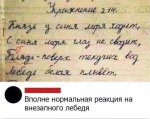 Упражнение 214.
Князь у синя моря ходит,
С синя моря глаз не сводит,
Блядь - поверх текучих вод
Лебедь белая плывёт.
Вполне нормальная реакция на
внезапного лебедя